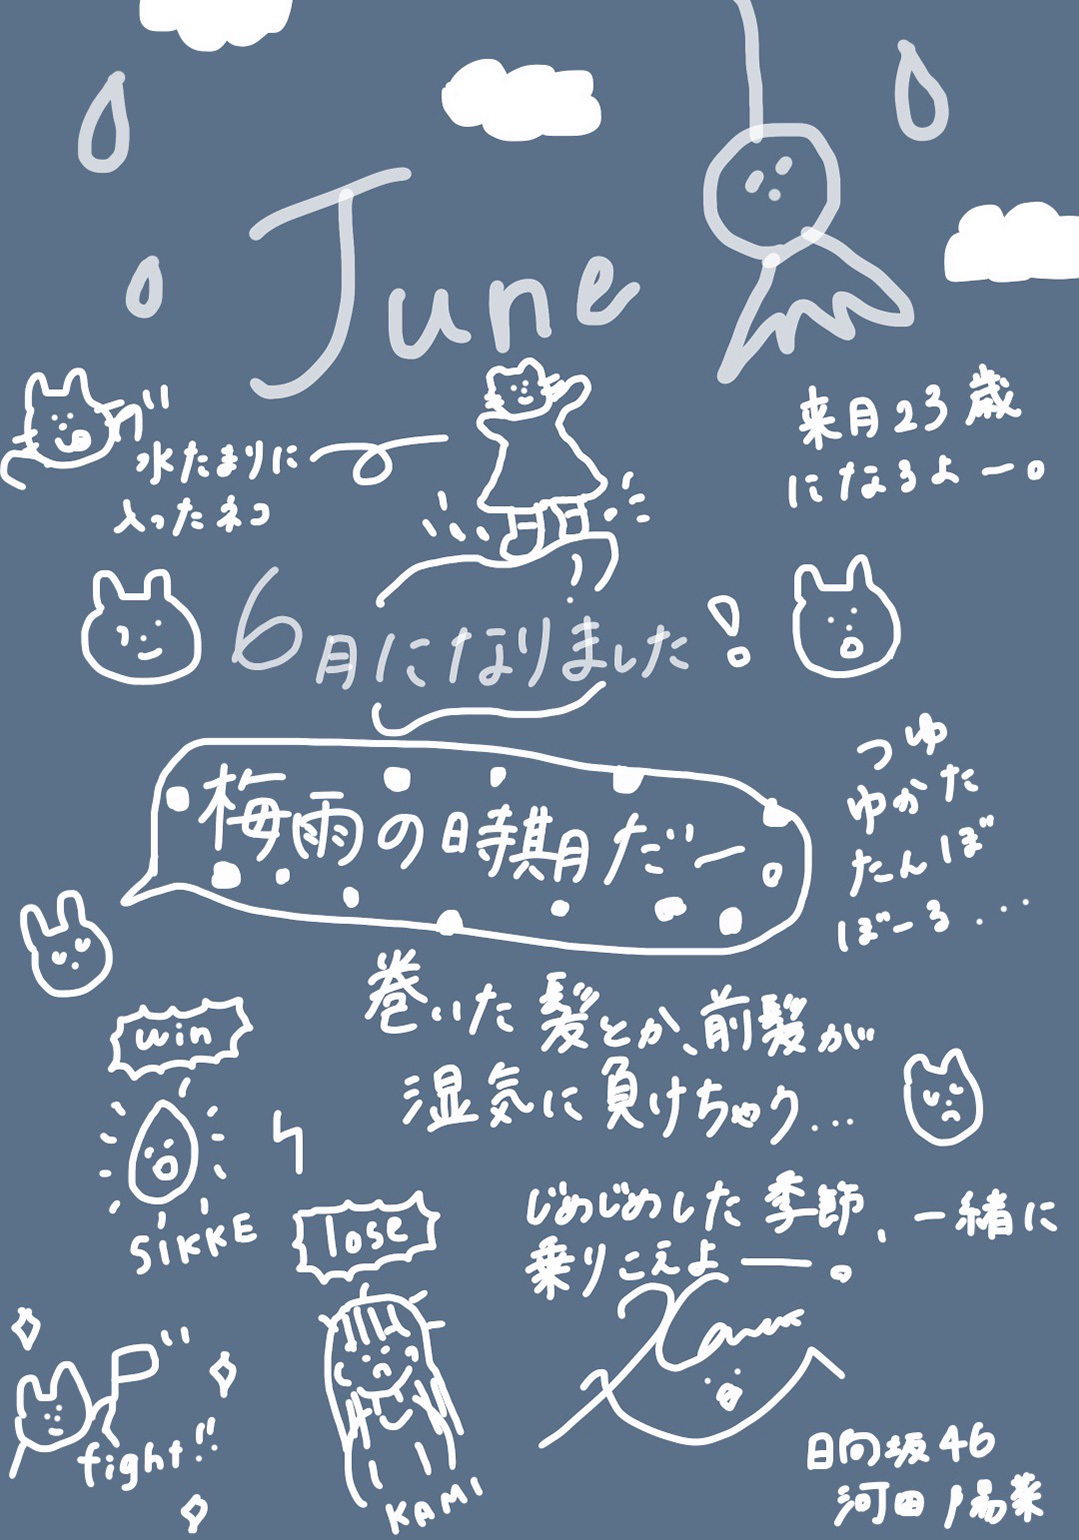 June
来月23歳
になるよー。
水たまりに
入ったネコ
6月になりました!
梅雨の時期だー。
つゆ
ゆかた
たんぼ
ぼーる...
巻いた髪とか、前髪が
湿気に負けちゃう...
win
SIKKE
lose
じめじめした季節、一緒に
乗りこえよー。
fight!!
KAMI
日向坂46
河田陽菜